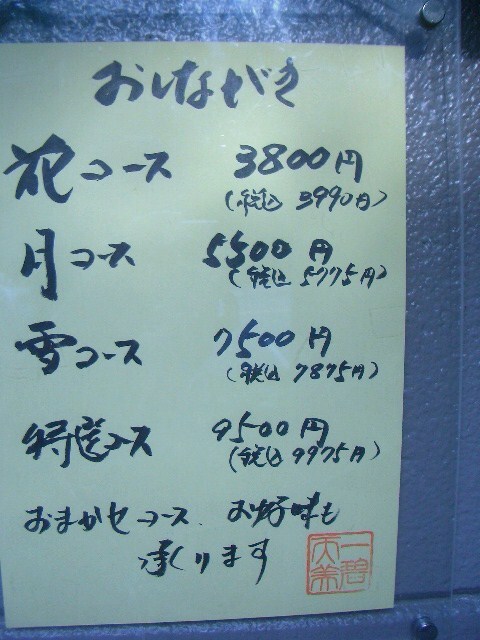 おしながき
花コース 3800円
(税込 3990円)
月コース 5500円
(税込 5775円)
雪コース 7500円
(税込 7875円)
特選コース 9500円
(税込 9975円)
おまかせコース、お好味も
承ります